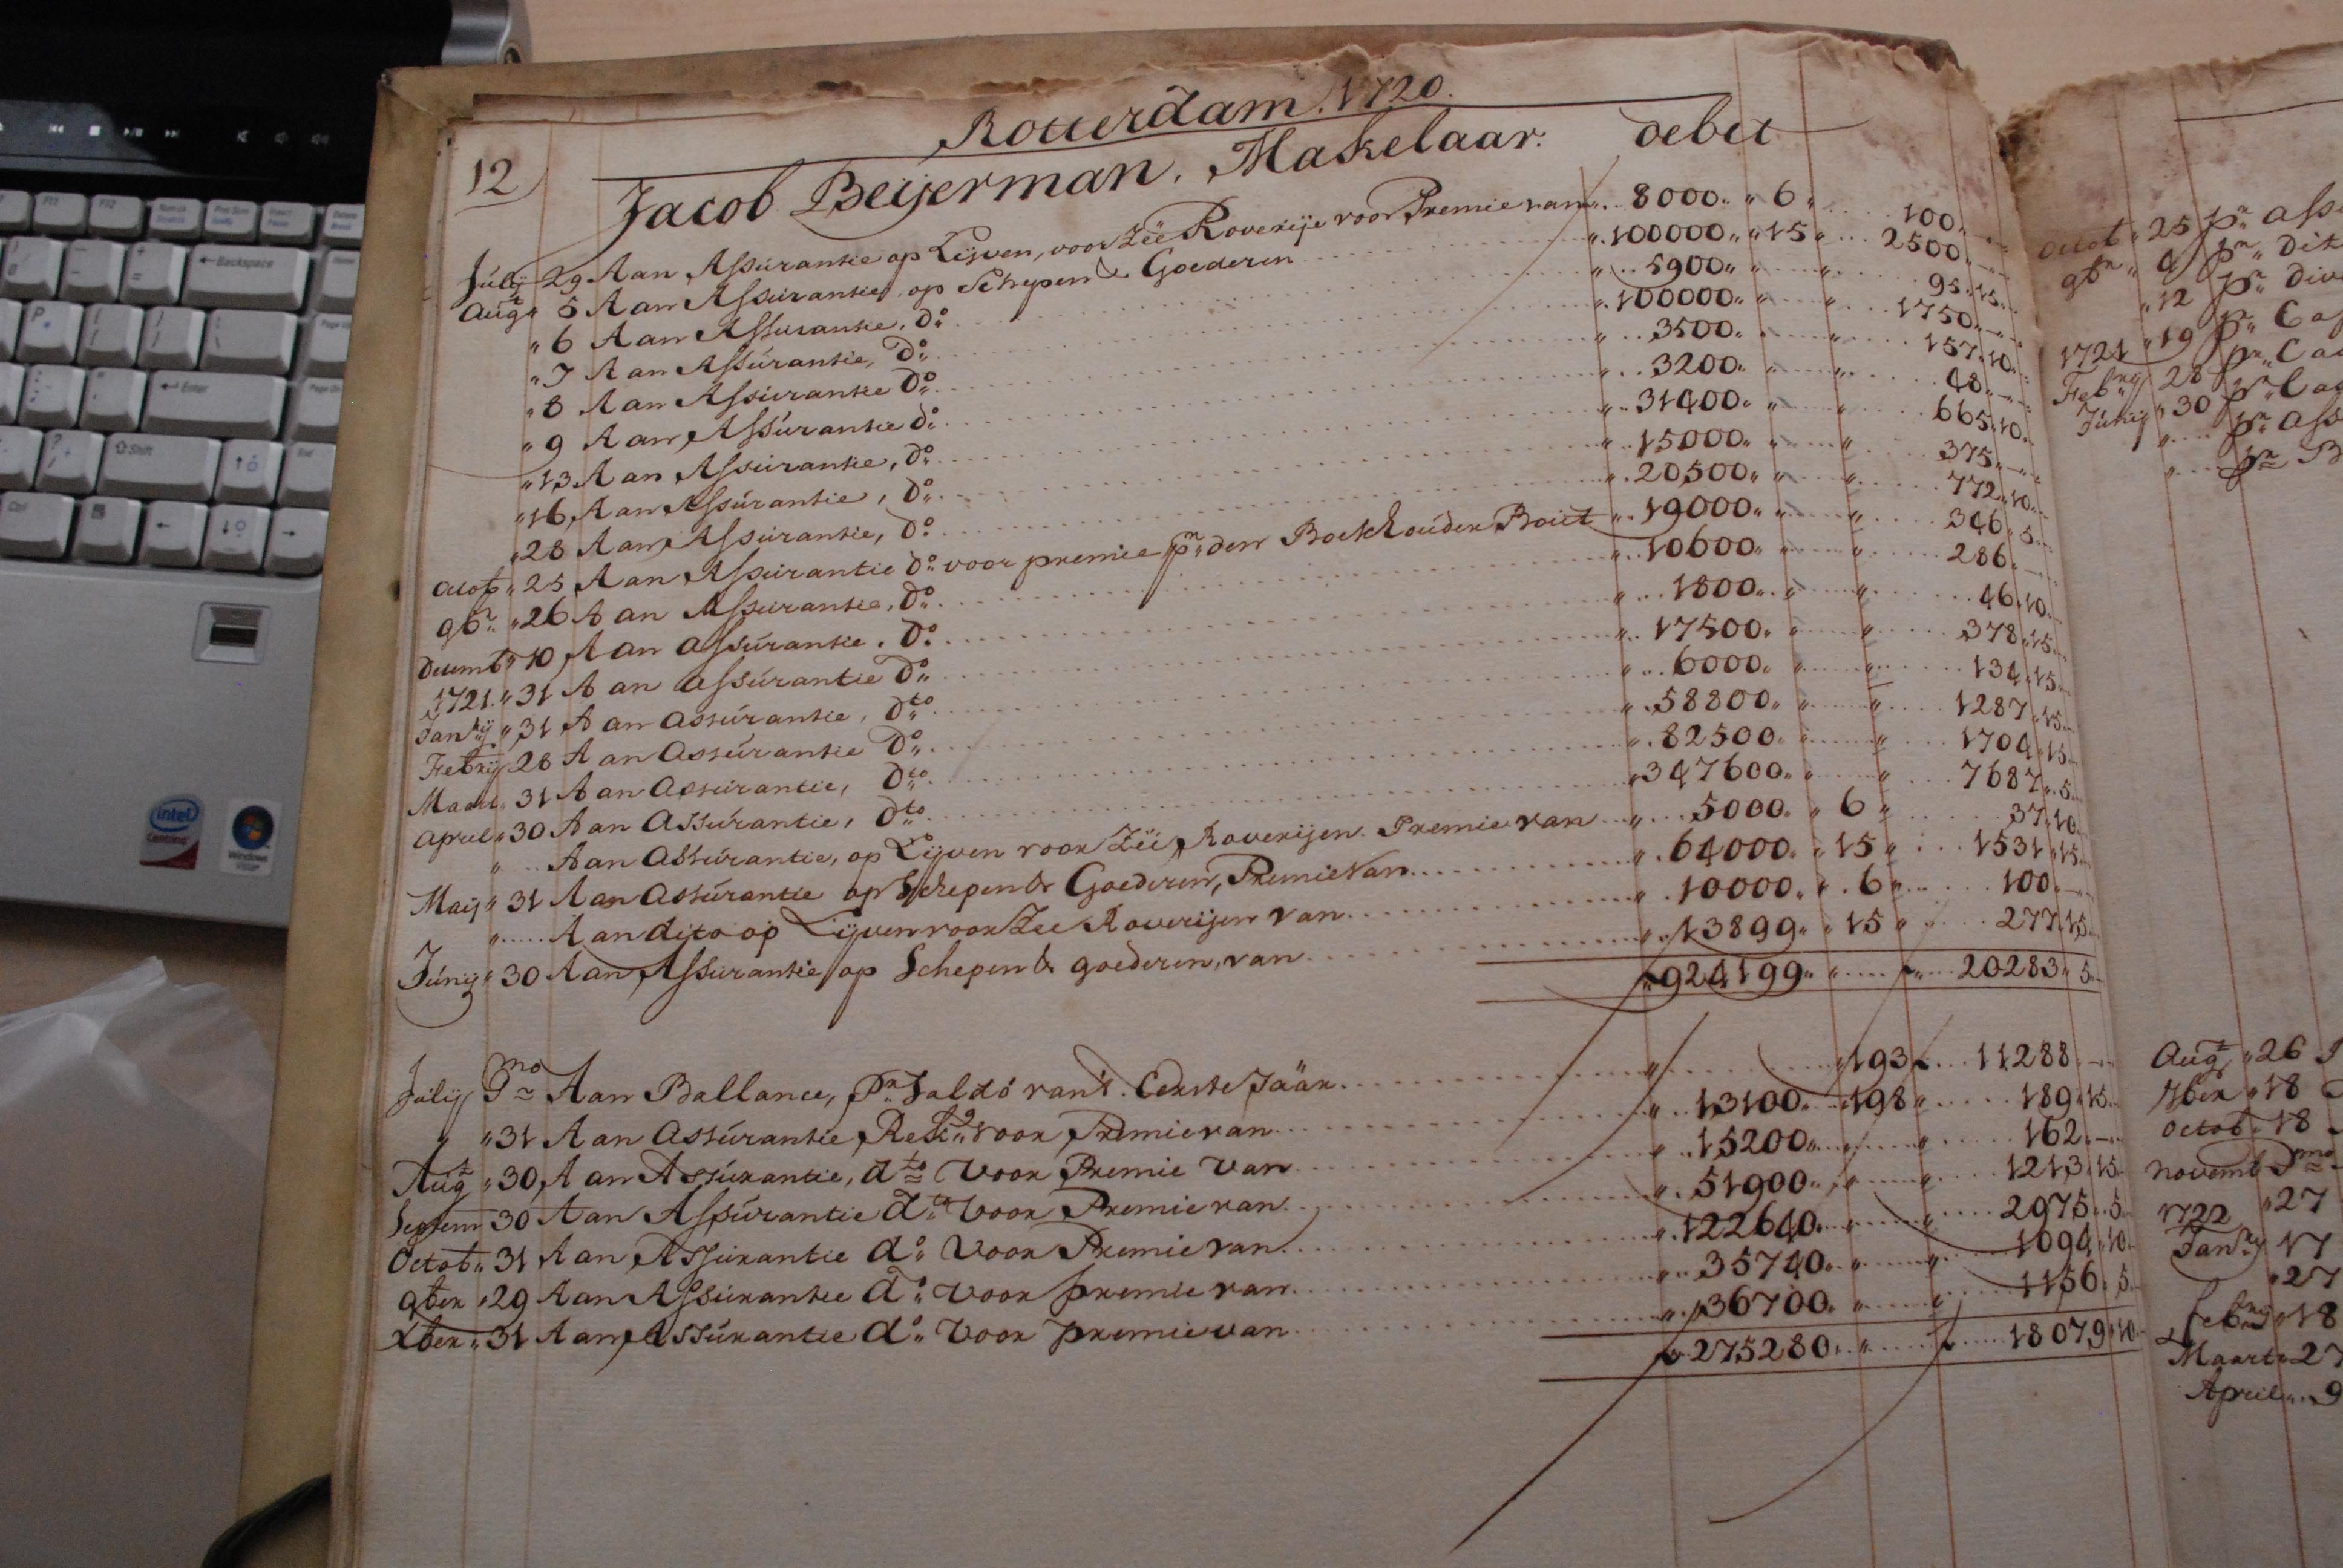 Rotterdam. 1720.
12 Jacob Beijerman, Makelaar. debet
Julij 29 Aan Assurantie op Lijven, voor Zee Roverije voor Premie van 8000 " 6 " 100 " —
Augt " 5 Aan Assurantie, op Schepen & Goederen 100000 " 15 " 2500 " —
" 6 Aan Assurantie, do 5900 " " 95 " 15
" 7 Aan Assurantie, Do 100000 " " 1750 " —
" 8 Aan Assurantie Do 3500 " " 157 " 10
" 9 Aan Assurantie do 3200 " " 48 " —
" 13 Aan Assurantie, Do 31400 " " 665 " 10
" 16 Aan Assurantie, Do 15000 " " 375 " —
" 28 Aan Assurantie, Do 20500 " " 772 " 10
Octob " 25 Aan Assurantie do voor premie pr den Boekhouder Boiit 19000 " " 346 " 5
9br " 26 Aan Assurantie, Do 10600 " " 286 " —
Decemb " 10 Aan assurantie, Do 1800 " " 46 " 10
1721 " 31 Aan assurantie Do 17500 " " 378 " 15
Janrij " 31 Aan assurantie, Dto 6000 " " 134 " 15
Febrij 28 Aan Assurantie Do 58800 " " 1287 " 15
Maart " 31 Aan Assurantie, Dto 82500 " " 1704 " 15
April " 30 Aan Assurantie, Dto 347600 " " 7687 " 5
" Aan Assurantie, op Lijven voor Zee Roverijen Premie van 5000 " 6 " 37 " 10
Maij " 31 Aan Assurantie op Schepen & Goederen, Premie van 64000 " 15 " 1531 " 15
" Aan dito op Lijven voor Zee Roverijen van 10000 " 6 " 100 " —
Junij " 30 Aan Assurantie op Schepen & goederen, van 13899 " 15 " 277 " 15
924199 " " 20283 " 5
Julij Pmo Aan Ballance, Pr Saldo van't Eerste Jaar " 193 11288 " —
" " 31 Aan Assurantie, voor Premie van 13100 " 198 " 189 " 15
Augt " 30 Aan Assurantie, dto voor Premie van 15200 " " 162 " —
Septem 30 Aan Assurantie dto voor Premie van 51900 " " 1213 " 15
Octob " 31 Aan Assurantie do voor Premie van 122640 " " 2975 " 5
9ber " 29 Aan Assurantie do voor premie van 35740 " " 1094 " 10
Xber " 31 Aan Assurantie do voor premie van 36700 " " 1156 " 5
275280 " " 18079 " 10
Octob " 25 pr
9br " 4 pr
" 12 pr
1721 " 19 pr
Febrij 28 pr
Junij " 30 pr
pr
pr
Augt " 26
7ber " 18
Octob " 18
novemb Pmo
1722 " 27
Janrij 17
" 27
febrij " 18
Maart " 27
April " 9
F11
F12
Backspace
Enter
Shift
Ctrl
End
intel
Centrino
Windows
Vista